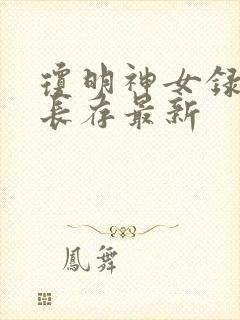 瓊明神女録
長存最新
鳳舞